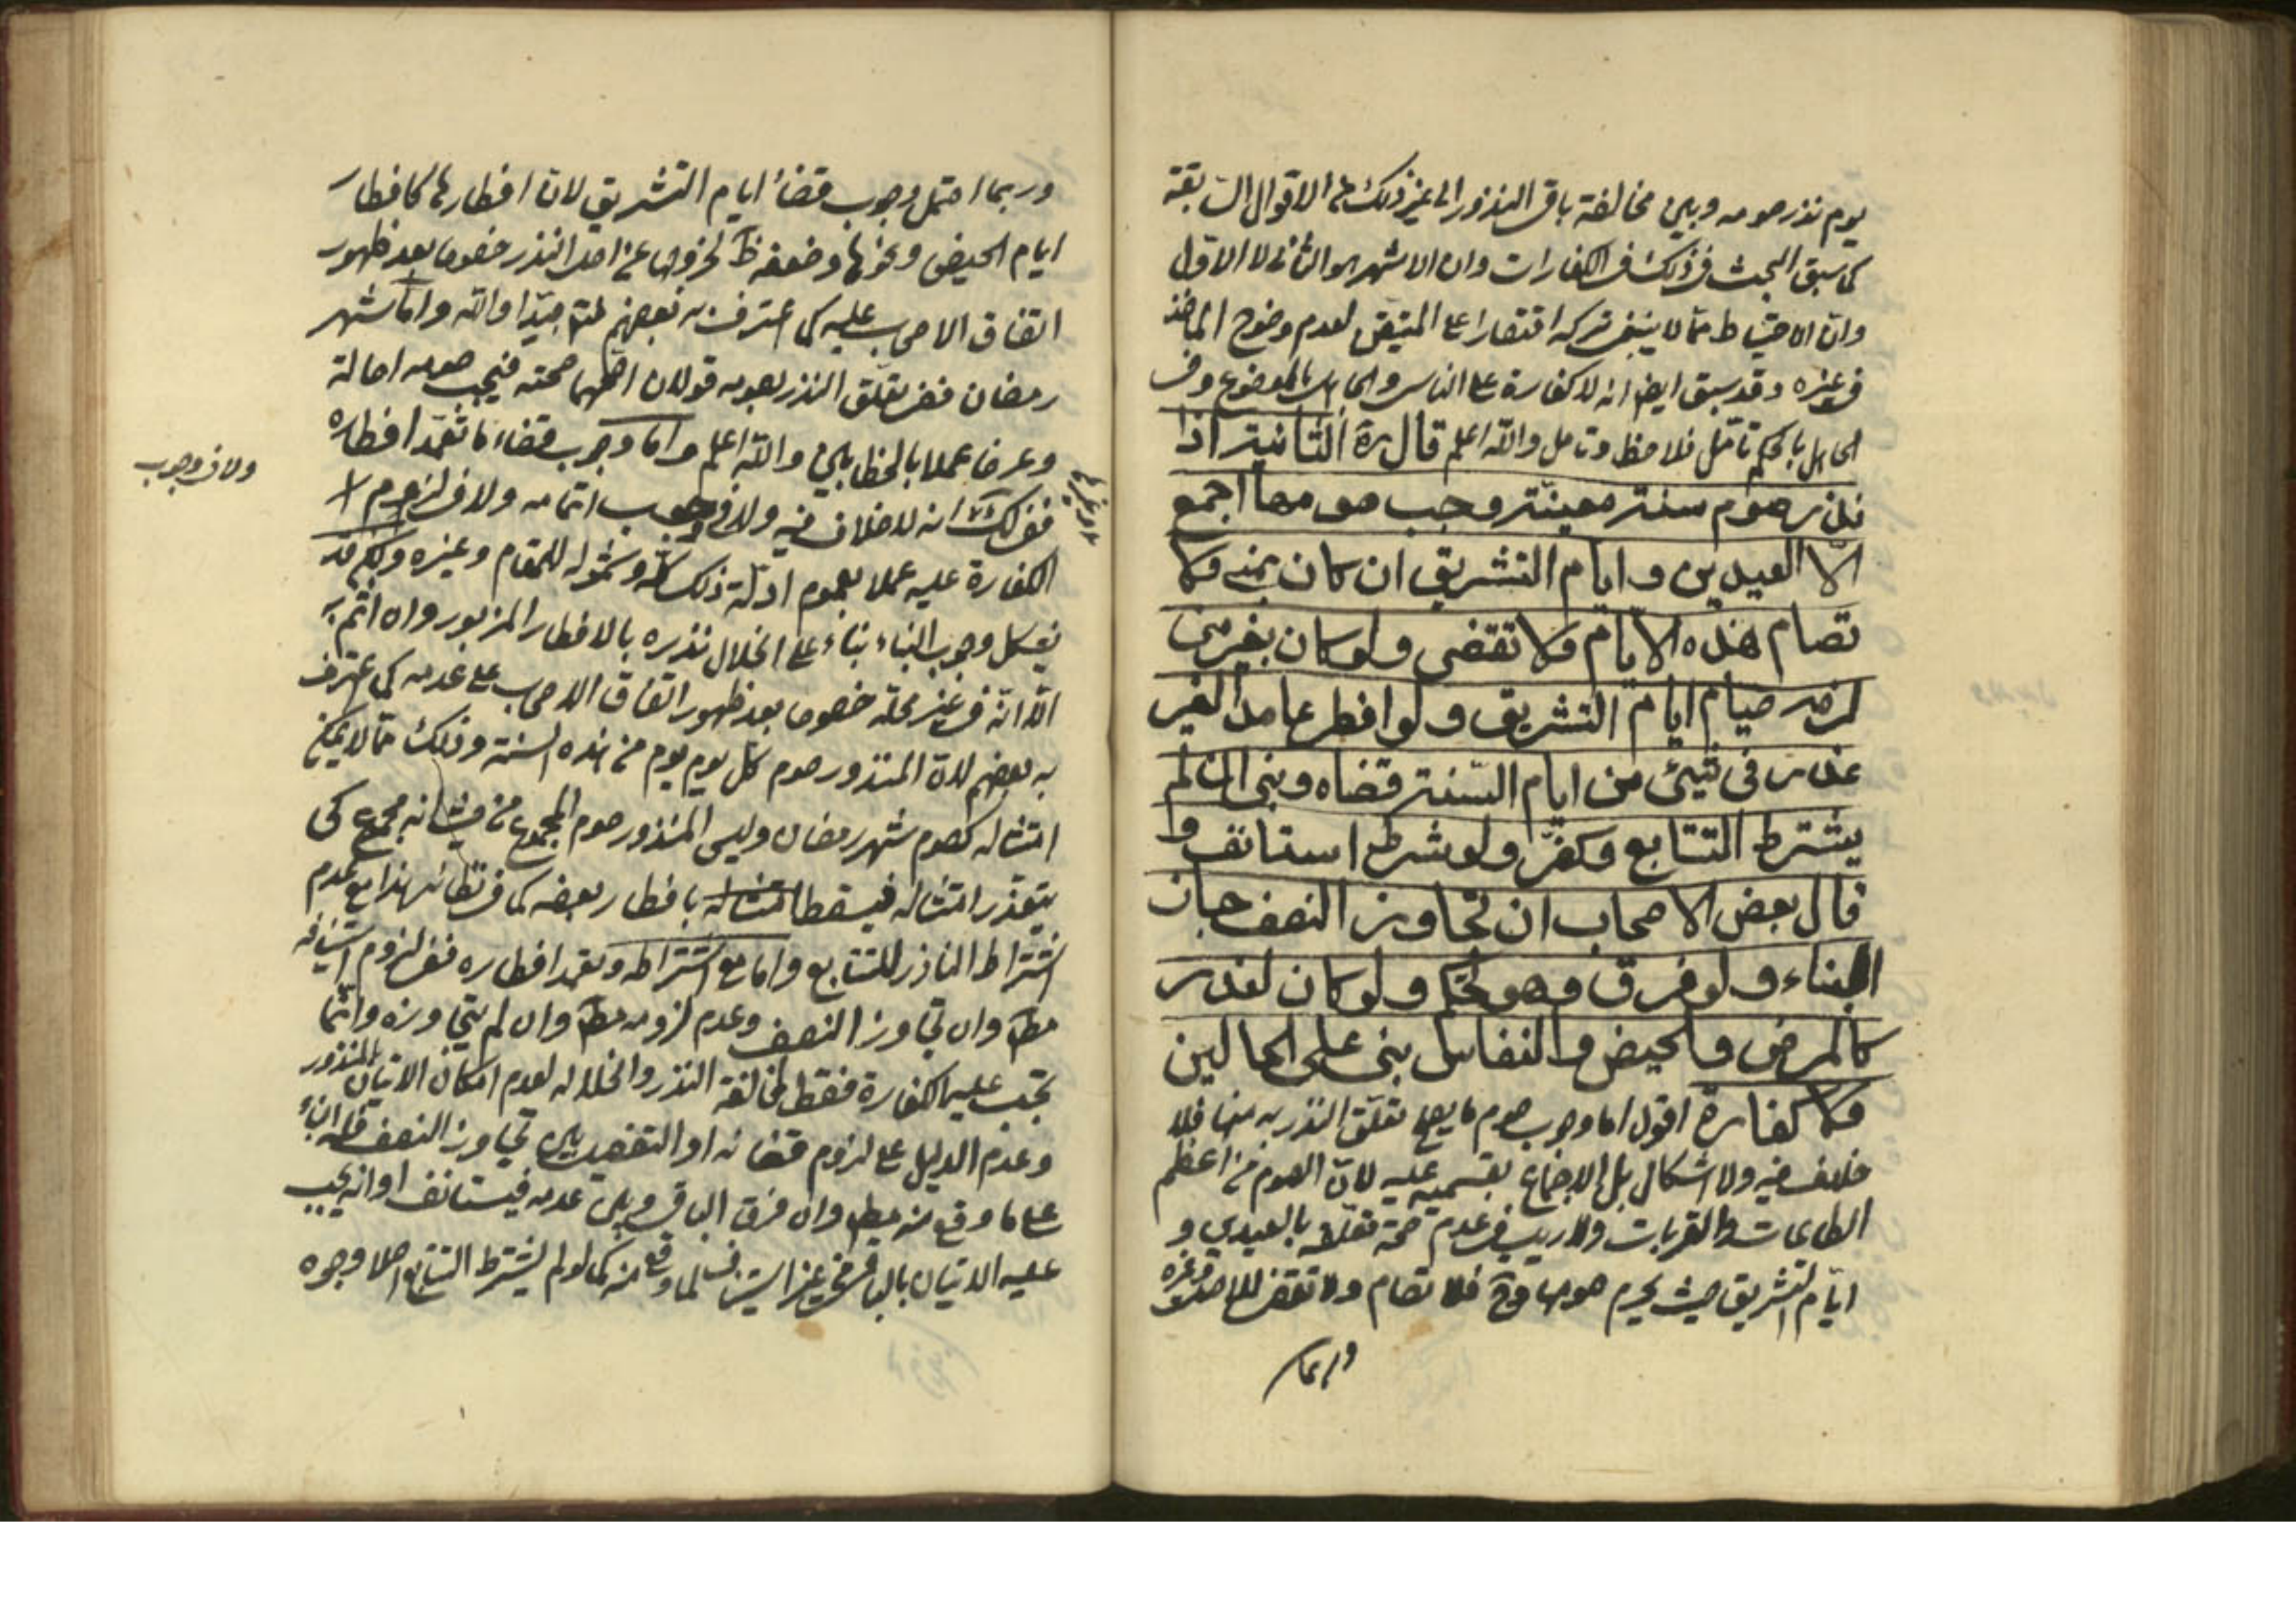 يوم نذر صومه وبين مخالفة باقي النذور الى غير ذلك من الاقوال السابقة
كما سبق البحث في ذلك في الكفارات وان الاشهر هو الثاني لا الاول
وان الاحتياط مما لا ينبغي تركه اقتصارا على المتيقن لعدم وضوح الماخذ
في غيره وقد سبق ايضا انه لا كفارة على الناسي والجاهل بالموضوع وفي
الجاهل بالحكم تامّل فلاحظ وتامل والله اعلم قال ره الثانية اذا
نذر صوم سنة معينة وجب صومها اجمع
الّا العيدين و ايام التشريق ان كان بمنى ولا
تصام هذه الايّام ولا تقضى ولو كان بغير منى
لزمه صيام ايام التشريق ولو افطر عامدا لغير
عذر في شيئ من ايام السّنة قضاه وبنى ان لم
يشترط التتابع وكفّر ولو شرط استانف و
قال بعض الاصحاب ان تجاوز النصف جاز
البناء ولو فرق وهو تحكم ولو كان لعذر
كالمرض والحيض والنفاس بنى على الحالين
ولا كفارة اقول اما وجوب صوم ما يصح تعلّق النذر به منها فلا
خلاف فيه ولا اشكال بل الاجماع بقسميه عليه لانّ الصوم من اعظم
الطاعات والقربات ولا ريب في عدم صحة تعلقه بالعيدين و
ايّام التشريق حيث يحرم صومها وح فلا تصام ولا تقضى للاصل وغيره
وربما
وربما احتمل وجوب قضاء ايام التشريق لان افطارها كافطار
ايام الحيض ونحوها وضعفه ظ لخروجها عن اصل النذر خصوصا بعد ظهور
اتفاق الاصحاب عليه كما اعترف به بعضهم والله واما شهر
رمضان ففي تعلّق النذر بصومه قولان اظهرهما صحته فيجب صومه اصالة
وعرضا عملا بالخطابين والله اعلم واما وجوب قضاء ما تعمّد افطاره
فلا خلاف فيه ولا في وجوب اتمامه ولا في لزوم
ولا في وجوب
الكفارة عليه عملا بعموم ادلّة ذلك كلّه وشموله للمقام وغيره ولكن قد
يشكل وجوب البناء بناء على انحلال نذره بالافطار المزبور وان اثم به
الّا انه في غير محله خصوصا بعد ظهور اتفاق الاصحاب على عدمه كما اعترف
به بعضهم لان المنذور صوم كل يوم يوم من هذه السنة وذلك مما لا يمكن
امتثاله كصوم شهر رمضان وليس المنذور صوم المجموع من حيث انه مجموع كي
يتعذر امتثاله فيسقط بافطار بعضه كما في نظائره هذا مع عدم
اشتراط الناذر للتتابع واما مع اشتراطه وتعمد افطاره ففي لزوم استينافه
مط وان تجاوز النصف وعدم لزومه مط وان لم يتجاوزه وانما
تجب عليه الكفارة فقط لمخالفة النذر وانحلاله لعدم امكان الاتيان بالمنذور
وعدم الدليل على لزوم قضائه او التفصيل بين تجاوز النصف فله البناء
على ما وقع منه مط وان فرق الباقي وبين عدمه فيستانف او انه يجب
عليه الاتيان بالباقي من غير استيناف لما وقع منه كما لو لم يشترط التتابع اصلا وجوه